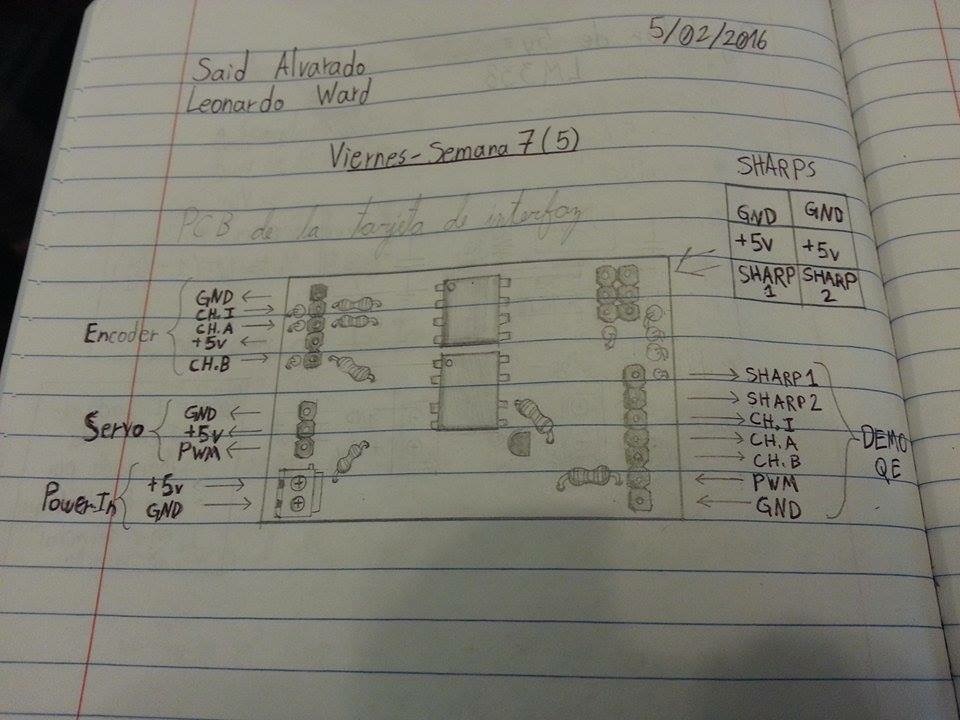 5/02/2016
Said Alvarado
Leonardo Ward
Viernes - Semana 7 (5)
PCB de la tarjeta de interfaz
SHARPS
GND GND
+5v +5v
SHARP 1 SHARP 2
Encoder
GND
CH.I
CH.A
+5v
CH.B
Servo
GND
+5v
PWM
Power In
+5v
GND
SHARP1
SHARP2
CH.I
CH.A
CH.B
PWM
GND
DEMO
QE